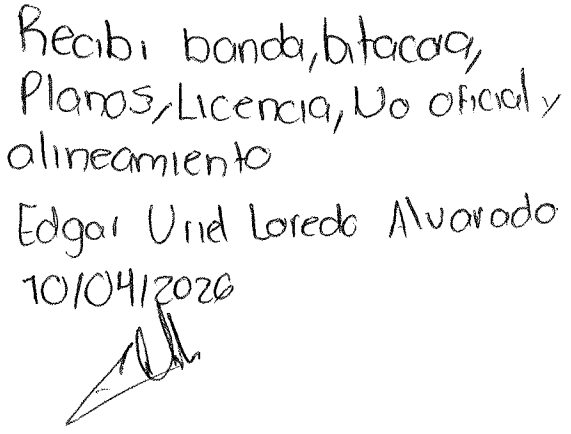 Recibi banda, bitacora,
Planos, Licencia, No oficial y
alineamiento
Edgar Uriel Loredo Alvarado
10/04/2026